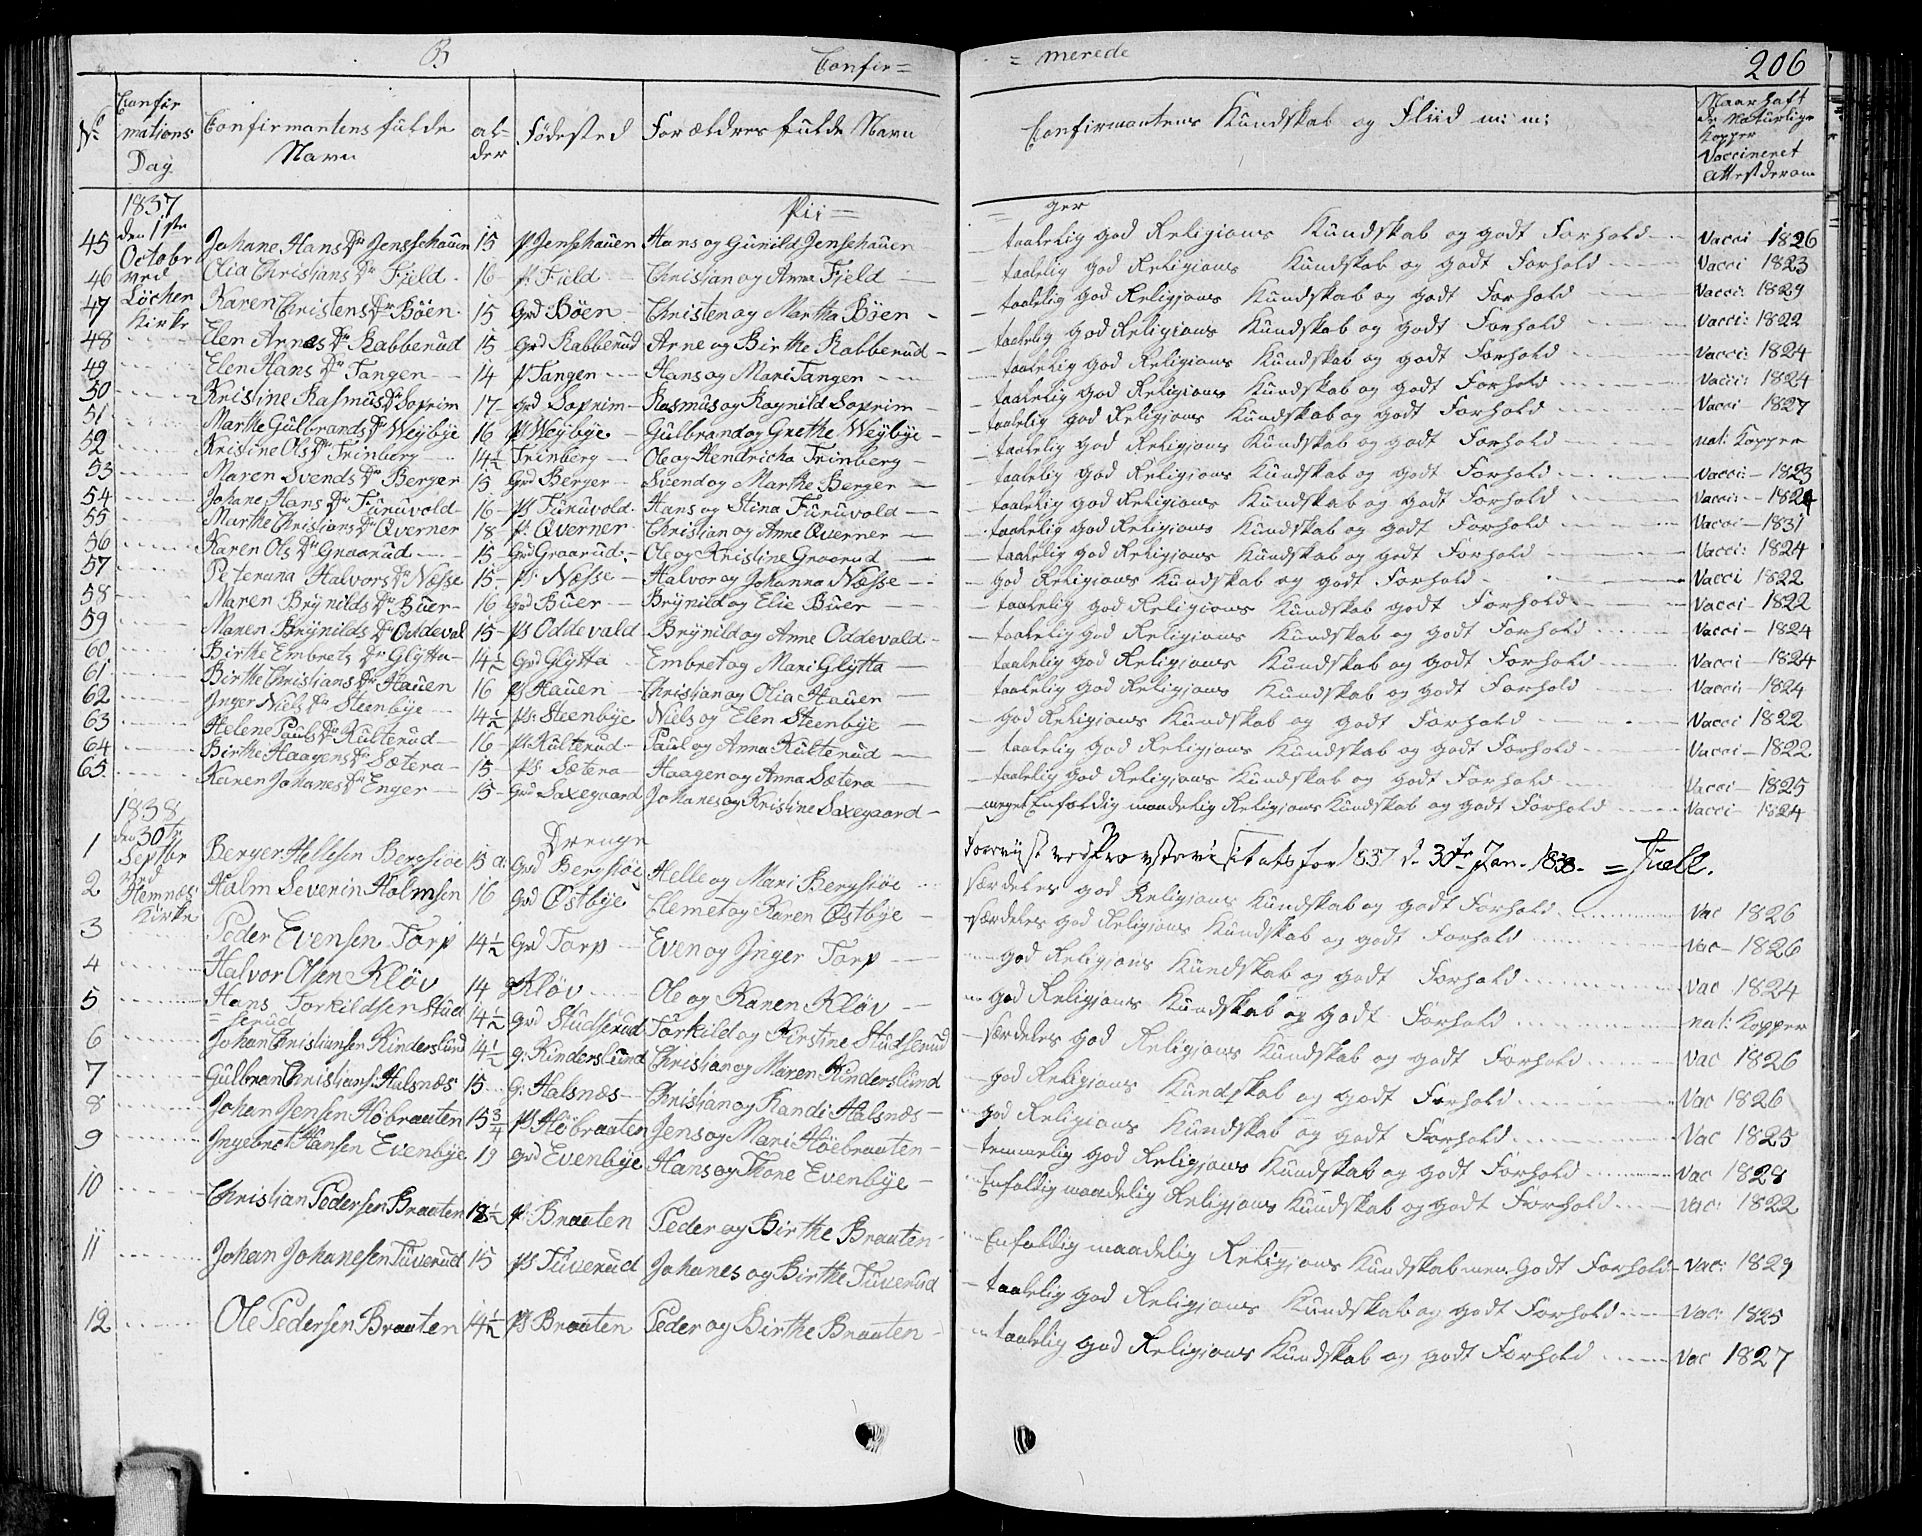 B
Confir=
= merede
206
No
Confirmations Dag
Confirmantens fulde Navn
alder
Fødested
Forældres fulde Navn
Confirmantens Kundskab og Fliid m: m:
1837 den 1ste Octobr ved Löchen Kirke
Pii= = ger
45 Johane Hans Dr Jensehauen 15 pl Jensehauen Hans og Gunild Jensehauen – taalelig god Religions Kundskab og godt Forhold Vacci – 1826
46 Olia Christjans Dr Fjeld 16 p: Fjeld Christjan og Anna Fjeld – taalelig god Religjons Kundskab og godt Forhold Vacci 1823
47 Karen Christens Dr Böen 15 Grd Böen Christen og Martha Böen – taalelig god Religjons Kundskab og godt Forhold Vacci: 1829
48 Elen Arnes Dr Kabberud 15 Grd Kabberud Arne og Birthe Kabberud – taalelig god Religjons Kundskab og godt Forhold Vacci: 1822
49 Elen Hans Dr Tangen 14 pl Tangen Hans og Mari Tangen – taalelig god Religions Kundskab og godt Forhold Vacci: 1824
50 Kristine Rasmus Dr Soprim 17 Grd Soprim Rasmus og Ragnild Soprim – taalelig god Religjons Kundskab og godt Forhold Vacci: 1824
51 Marthe Gulbrands Dr Weybye 16 pl Weybye Gulbrand og Grethe Weybye – taalelig god Religjons Kundskab og godt Forhold Vacci 1827
52 Kristine Ols Dr Trinberg 14½ Trinberg Ole og Hendricka Trinberg – taalelig god Religjons Kundskab og godt Forhold nat: Kopper
53 Maren Svends Dr Berger 15 Grd Berger Svend og Marthe Berger – taalelig god Religions Kundskab og godt Forhold Vacci: – 1823
54 Johane Hans Dr Furuvold 16 ps Furuvold Hans og Stina Furuvold – taalelig god Religions Kundskab og godt Forhold Vacci: – 1824
55 Marthe Christians Dr Qverner 18 p: Qverner Christian og Anne Qverner – taalelig god Religjons Kundskab og godt Forhold Vacci – 1831
56 Karen Ols Dr Graarud 15 Grd Graarud Ole og Kristine Graarud – taalelig god Religions Kundskab og godt Forhold Vacci: 1824
57 Peterana Halvors Dr Næsse 15 ps Næsse Halvor og Johanna Næsse – god Religjons Kundskab og godt Forhold Vacci 1822
58 Maren Brynilds Dr Buer 16 Grd Buer Brynild og Elie Buer – taalelig god Religions Kundskab godt Forhold Vacci – 1822
59 Maren Brynilds Dr Oddeval 15 ps Oddevald Brynild og Anne Oddevald – taalelig god Religions Kundskab og godt Forhold Vacci – 1824
60 Birthe Embrets Dr Glytta 14½ Grd Glytta Embret og Mari Glytta – taalelig god Religjons Kundskab og godt Forhold Vacci – 1824
61 Birthe Christjans Dr Hauen 16 ps Hauen Christjan og Olia Hauen – taalelig god Religjons Kundskab og godt Forhold Vacci – 1824
62 Inger Niels Dr Steenbye 14½ ps: Steenbye Niels og Elen Steenbye – god Religjons Kundskab og godt Forhold Vacci 1822
63 Helene Pauls Dr Kulterud 16 pl Kulterud Paul og Anna Kulterud – taalelig god Religions Kundskab og godt Forhold Vacci – 1822
64 Birthe Haagens Dr Sætera 15 ps Sætera Haagen og Anna Sætera – taalelig god Religjons Kundskab og godt Forhold Vacci – 1825
65 Karen Johanes Dr Enger 15 Grd Saxegaard Johanes og Kristine Saxegaard – meget Enfoldig maadelig Religjons Kundskab og godt Forhold Vacci – 1824
1838 den 30te Septbr ved Hemnes Kirke
Drenge
Foreviist ved Provstevisitats for 1837 d. 30te Jan. 1838. = Juell.
1 Berger Hellesen Bergsiøe 15 a: Grd Bergsiøe Helle og Mari Bergsiøe særdeles god Religjons Kundskab og godt Forhold Vac 1826
2 Halm Severin Holmsen 16 Grd Østbye Clemet og Karen Østbye særdeles god Religions Kundskab og godt Forhold Vac – 1826
3 Peder Evensen Torp 14½ Grd Torp Even og Inger Torp god Religjons Kundskab og godt Forhold Vac 1824
4 Halvor Olsen Kløv 14 Kløv Ole og Karen Kløv god Religjons Kundskab og godt Forhold nat: Kopper
5 Hans Torkildsen Studserud 14½ Grd Studserud Torkild og Kirstine Studserud særdeles god Religions Kundskab og godt Forhold Vac 1826
6 Johan Christiansen Kinderslund 14½ g: Kinderslund Christian og Maren Kinderslund god Religions Kundskab og godt Forhold Vac 1826
7 Gulbran Christians: Halsnæs 15 G: Halsnæs Christjan og Randi Halsnæs god Religions Kundskab og godt Forhold Vac 1825
8 Johan Jensen Høbraaten 15¾ ps Høbraaten Jens og Mari Höebraaten temmelig god Religjons Kundskab og godt Forhold Vac 1828
9 Ingebret Hansen Evenbye 19 Grd Evenbye Hans og Thone Evenbye Enfoldig maadelig Religjons Kundskab og godt Forhold Vac: 1822
10 Christian Pedersen Braaten 18½ p: Braaten Peder og Birthe Braaten Enfoldig maadelig Religjons Kundskab men Godt Forhold Vac: 1829
11 Johan Johanesen Tuverud 15 ps Tuverud Johanes og Birthe Tuverud taalelig god Religjons Kundskab og godt Forhold Vac: 1825
12 Ole Pedersen Braaten 14½ ps Braaten Peder og Birthe Braaten taalelig god Religions Kundskab og godt Forhold Vac 1827